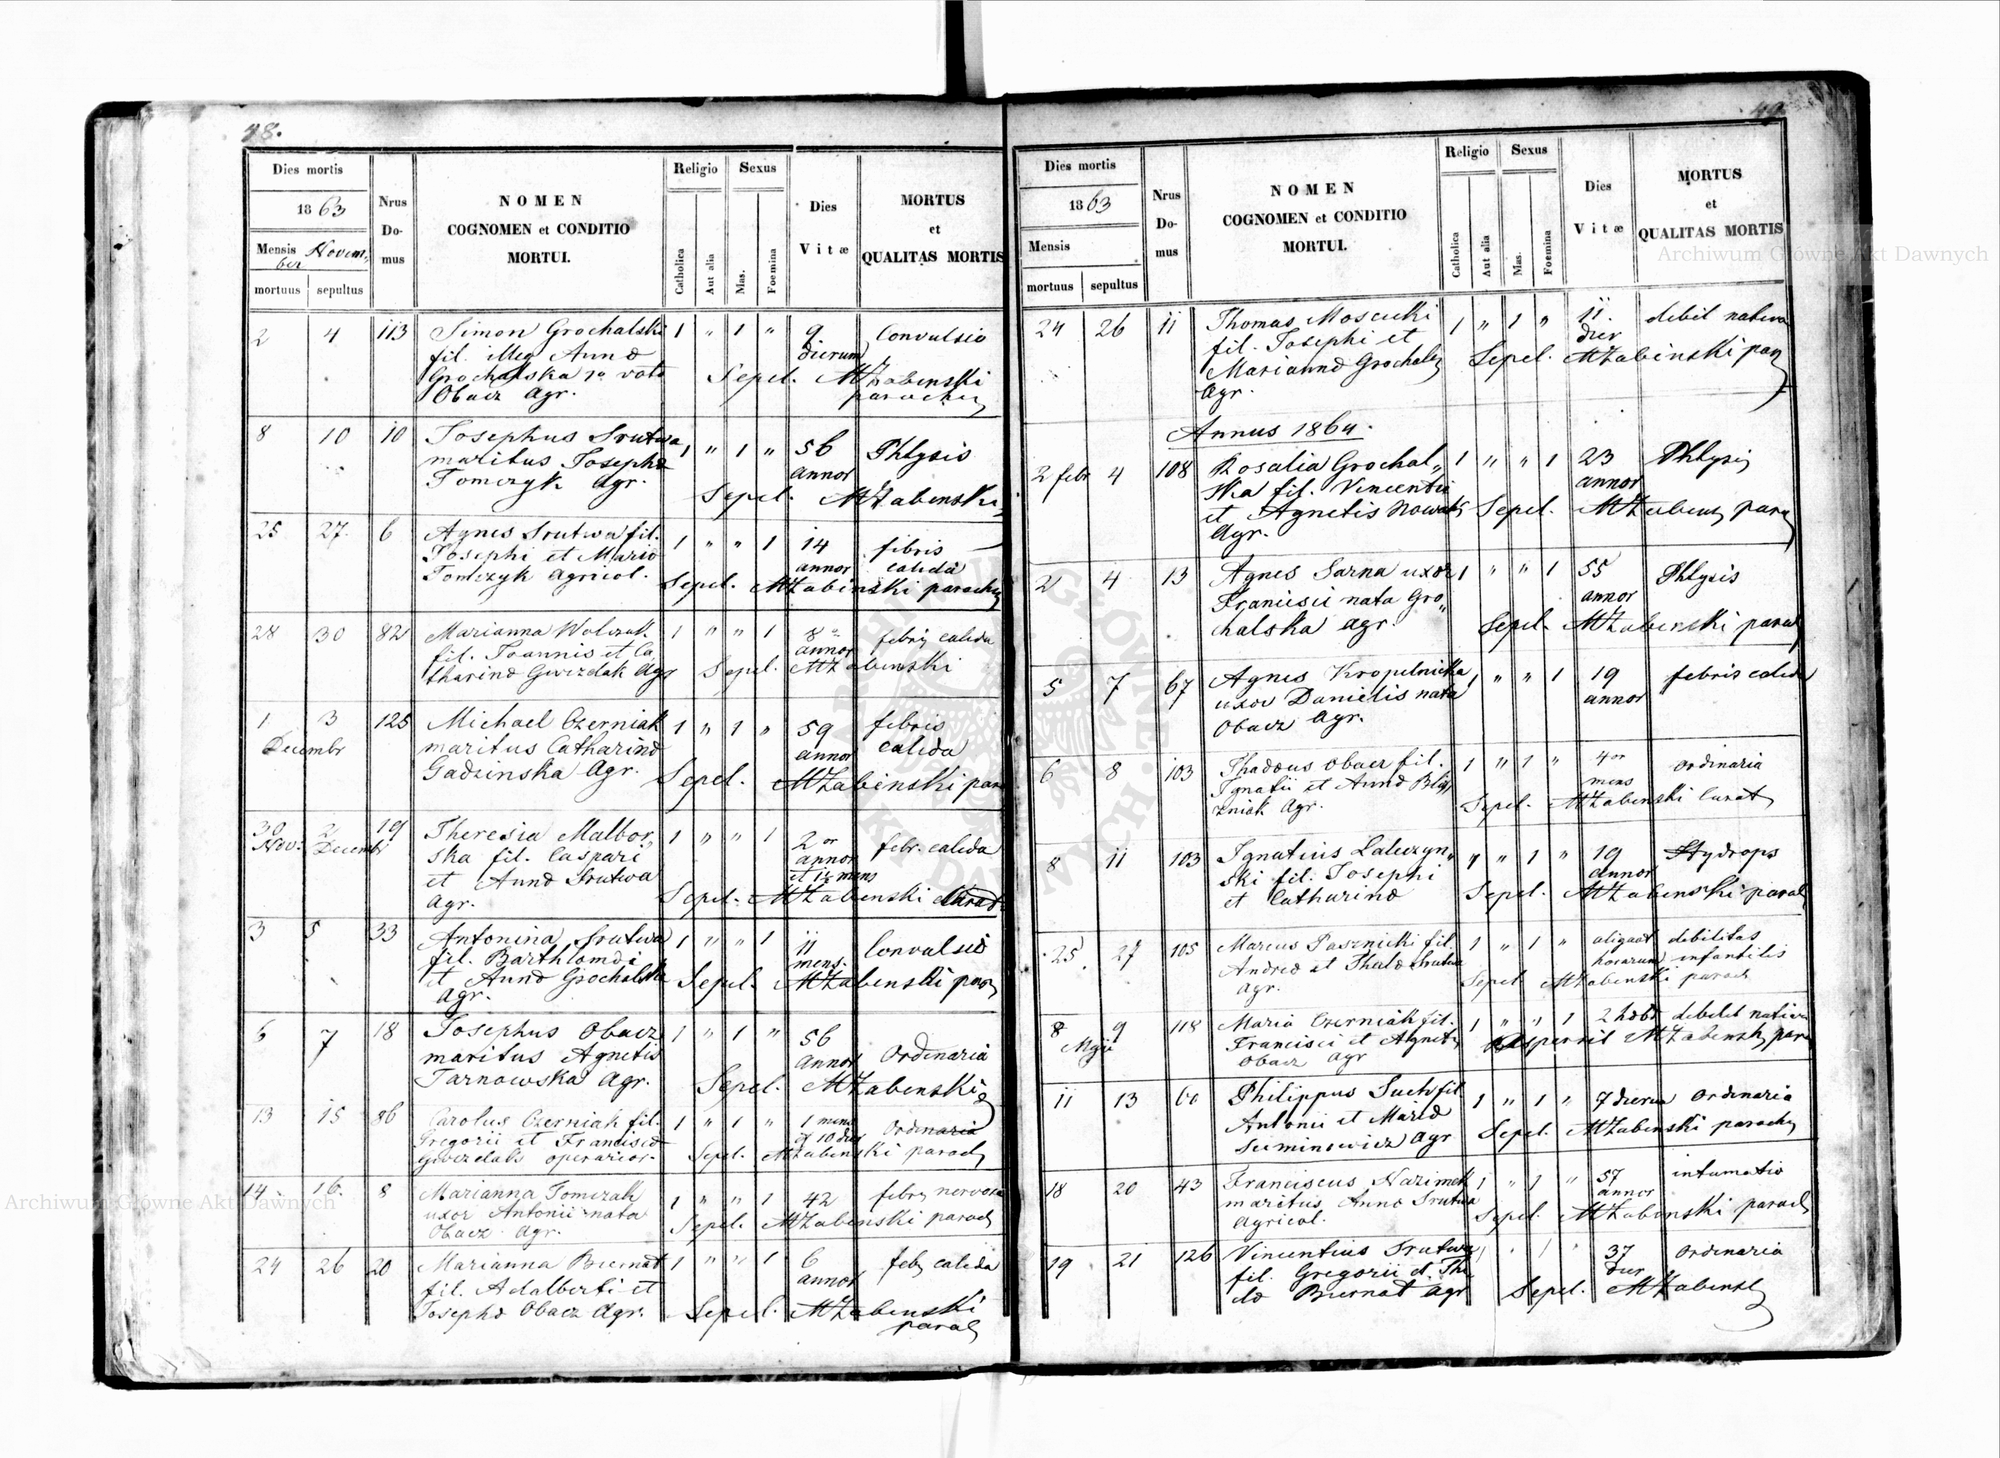 48.
Dies mortis
1863
Mensis Novem,
ber
mortuus sepultus
Nrus
Do-
mus
NOMEN
COGNOMEN et CONDITIO
MORTUI.
Religio
Catholica
Aut alia
Sexus
Mas.
Foemina
Dies
Vitæ
MORTUS
et
QUALITAS MORTIS
2 4 113 Simon Grochalski 1 " 1 " 9 Convulsio
fil. illeg Anna dierum
Grochalska 1o voto Sepel. MZabinski
Obacz Agr. parochus
8 10 10 Josephus Srutwa 1 " 1 " 56 Phtysis
maritus Josepha annor
Tomczyk Agr. Sepel. MZabenski
25 27 6 Agnes Srutwa fil. 1 " " 1 14 febris
Josephi et Maria annor calida
Tomczyk Agricol. Sepel. MZabinski paroch
28 30 82 Marianna Walczak 1 " " 1 8 febris calida
fil. Joannis et Ca annor
tharina Gwizdak Agr Sepel. MZabenski
1 3 125 Michael Czerniak 1 " 1 " 59 febris
Decembr maritus Catharina annor calida
Gadzinska Agr. Sepel. MZabinski par
30 2 19 Theresia Malbor, 1 " " 1 2 or febr. calida
Nov. Decembr ska fil. Caspari annor
et Anna Srutwa et mens
Agr. Sepel. MZabenski
3 5 33 Antonina Srutwa 1 " " 1 11 Convulsio
fil. Barthlomai mens.
et Anna Grochalska Sepel. MZabenski par
Agr.
5 7 18 Josephus Obacz 1 " 1 " 56 Ordinaria
maritus Agnetis annor
Tarnowska Agr. Sepel. MZabenski
13 15 86 Carolus Czerniak fil. 1 " 1 " 1 mens Ordinaria
Gregorii et Francisca et 10 dies
Gwizdak operarior. Sepel. MZabenski paroch
14 16. 8 Marianna Tomczak 1 " " 1 42 febris nervosa
uxor Antonii nata Sepel. MZabenski paroch
Obacz Agr.
24 26 20 Marianna Biernat 1 " " 1 6 febr calida
fil. Adalberti et annor
Josepha Obacz Agr. Sepel. MZabenski
paroch
49
Dies mortis
1863
Mensis
mortuus sepultus
Nrus
Do-
mus
NOMEN
COGNOMEN et CONDITIO
MORTUI.
Religio
Catholica
Aut alia
Sexus
Mas.
Foemina
Dies
Vitæ
MORTUS
et
QUALITAS MORTIS
24 26 11 Thomas Moscicki 1 " 1 " 11. debil nativa
fil. Josephi et dier
Marianna Grochals Sepel. MZabinski par
Agr.
Annus 1864.
2 febr 4 108 Rosalia Grochal„ 1 " " 1 23 Phtysis
ska fil. Vincentii annor
et Agnetis Nowak Sepel. MZabens paro
Agr.
2 4 13 Agnes Sarna uxor 1 " " 1 55 Phtysis
Francisci nata Gro„ annor
chalska Agr. Sepel. MZabenski paroch
5 7 67 Agnes Kropelnicka 1 " " 1 19 febris calida
uxor Danielis nata annor
Obacz Agr.
6 8 103 Thadous Obacz fil. 1 " 1 " 4or ordinaria
Ignatii et Anna Bliz mens
zniak Agr. Sepel. MZabenski Curat
8 11 103 Ignatius Laluzyn„ " 1 " 19 Hydrops
ski fil. Josephi annor
et Catharina Sepel. MZabenski paroch
25 27 105 Marcus Pasznicki fil. 1 " 1 " aliquot debilitas
Andrea et Thecla Srutwa horarum infantilis
Agr. Sepel MZabenski paroch
8 9 118 Maria Czerniak fil. 1 " " 1 2 debilit nativa
Maji Francisci et Agnetis MZabensk par
Obacz Agr
11 13 60 Philippus Such fil 1 " 1 " 7 dierum Ordinaria
Antonii et Maria Sepel. MZabenski paroch
Seiminowicz Agr
18 20 43 Franciscus Nazimek 1 " 1 " 57 intumatio
maritus Anna Srutwa annor
Agricol. Sepel. MZabenski paroch
19 21 126 Vincentius Srutwa 1 " 1 " 37 Ordinaria
fil. Gregorii et The dier
cla Biernat Agr Sepel. MZabensk
Archiwum Główne Akt Dawnych
Archiwum Główne Akt Dawnych